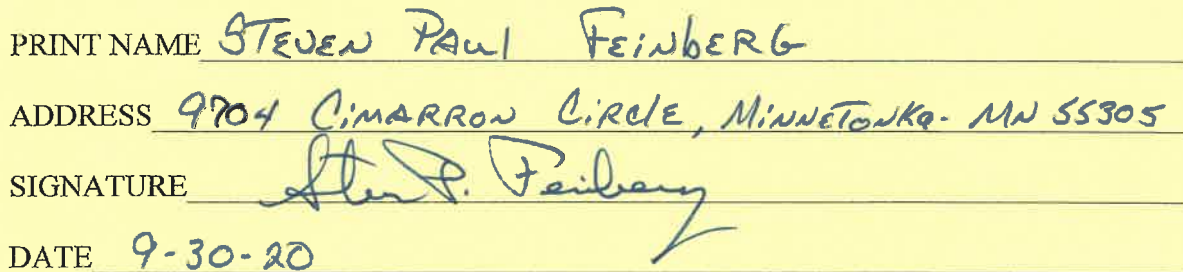 PRINT NAME STEVEN PAUl FEiNbERG
ADDRESS 9704 CiMARRON CiRClE, MiNNETONKa- MN 55305
SIGNATURE Steven P. Feinberg
DATE 9-30-20